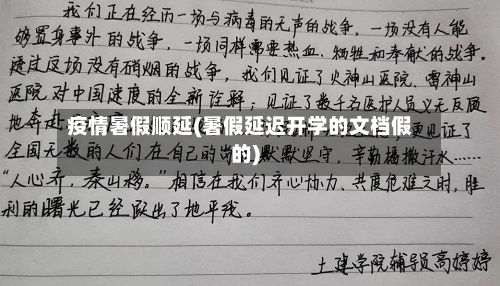 我们正在经历一场与病毒的无声的战争，一场没有人能
够置身事外的战争，一场同样需要热血、牺牲和奉献的战争。
透过这场没有硝烟的战争，我们见证了火神山医院、雷神山
医院对中国速度的全新诠释；见证了数千名医护人员义无反顾
地奔赴
疫情暑假顺延(暑假延迟开学的文档假
的)
更见证了
全国无数的人们在自己的
默默坚守，辛勤播撒汗水……
“人心齐，泰山移。”相信在我们齐心协力、共度危难之时，胜
利的曙光已经跃出了地平线。
土建学院辅导员高婷婷